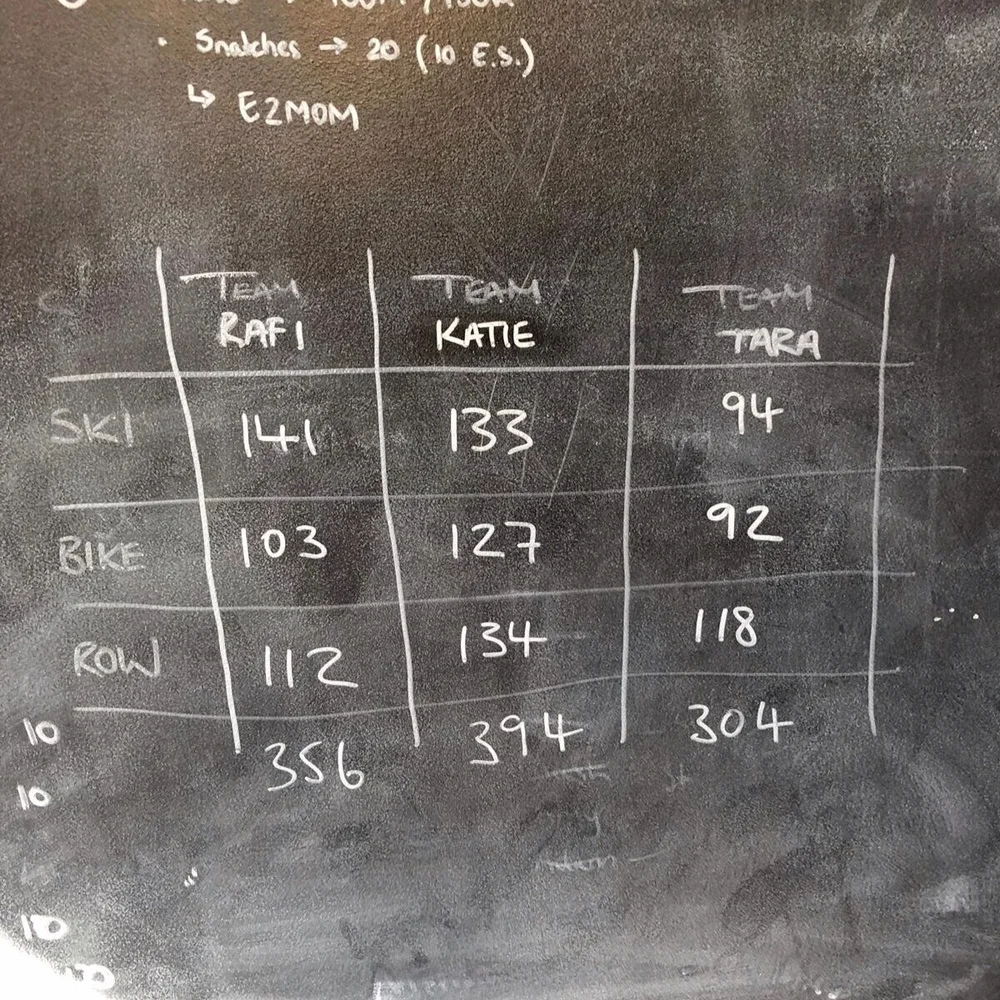 • Snatches → 20 (10 E.S.)
↳ E2MOM
TEAM RAFI TEAM KATIE TEAM TARA
SKI 141 133 94
BIKE 103 127 92
ROW 112 134 118
356 394 304
10
10
10